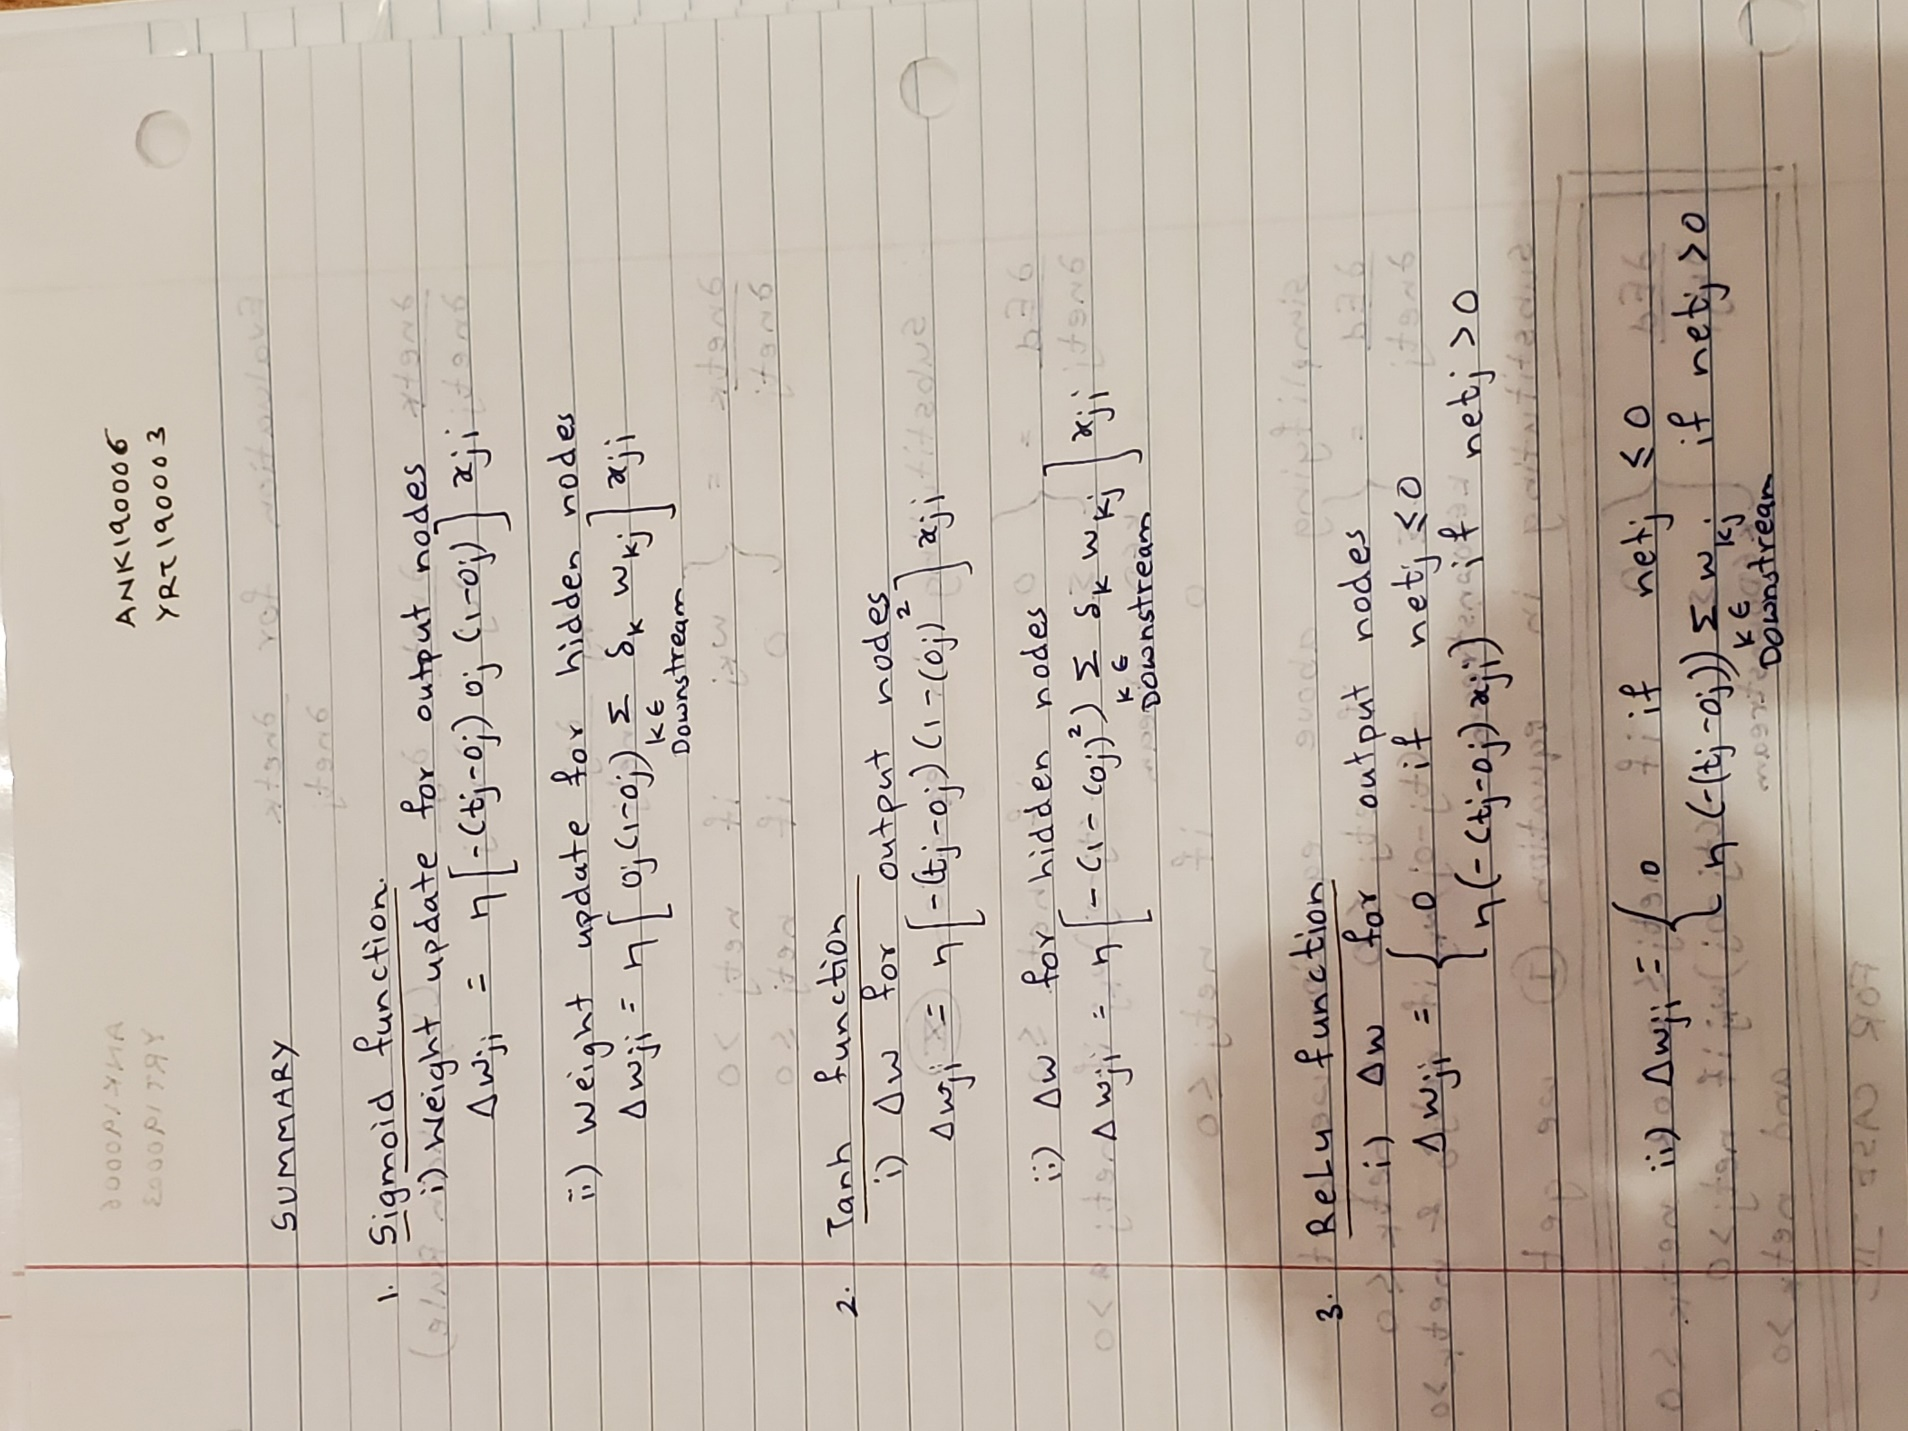 ANK190006
YRT190003
SUMMARY
1. Sigmoid function.
i) Weight update for output nodes
Δwji = η[-(tj-oj) oj (1-oj)] xji
ii) Weight update for hidden nodes
Δwji = η[oj(1-oj) Σ δk wkj] xji
kϵ
Downstream
2. Tanh function
i) Δw for output nodes
Δwji = η[-(tj-oj)(1-(oj)²] xji
ii) Δw for hidden nodes
Δwji = η[-(1-(oj)²) Σ δk wkj] xji
kϵ
Downstream
3. ReLu function
i) Δw for output nodes
Δwji = { 0 if netj ≤ 0
η(-(tj-oj) xji) if netj > 0
ii) Δwji = { 0 if netj ≤ 0
η(-(tj-oj)) Σ wkj if netj > 0
kϵ
Downstream